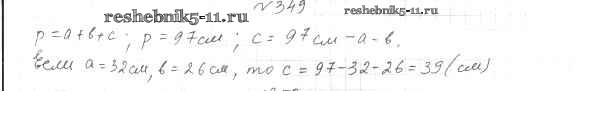 №349
reshebnik5-11.ru reshebnik5-11.ru
p=a+в+c; p=97см; c=97см-a-в.
Если a=32см, в=26см, то c=97-32-26=39(см)